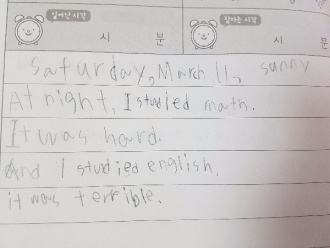 일어난 시각 잠자는 시각
시 분 시 분
Saturday, March 11, sunny
At night, I studied math.
It was hard.
And I studied english.
it was terrible.